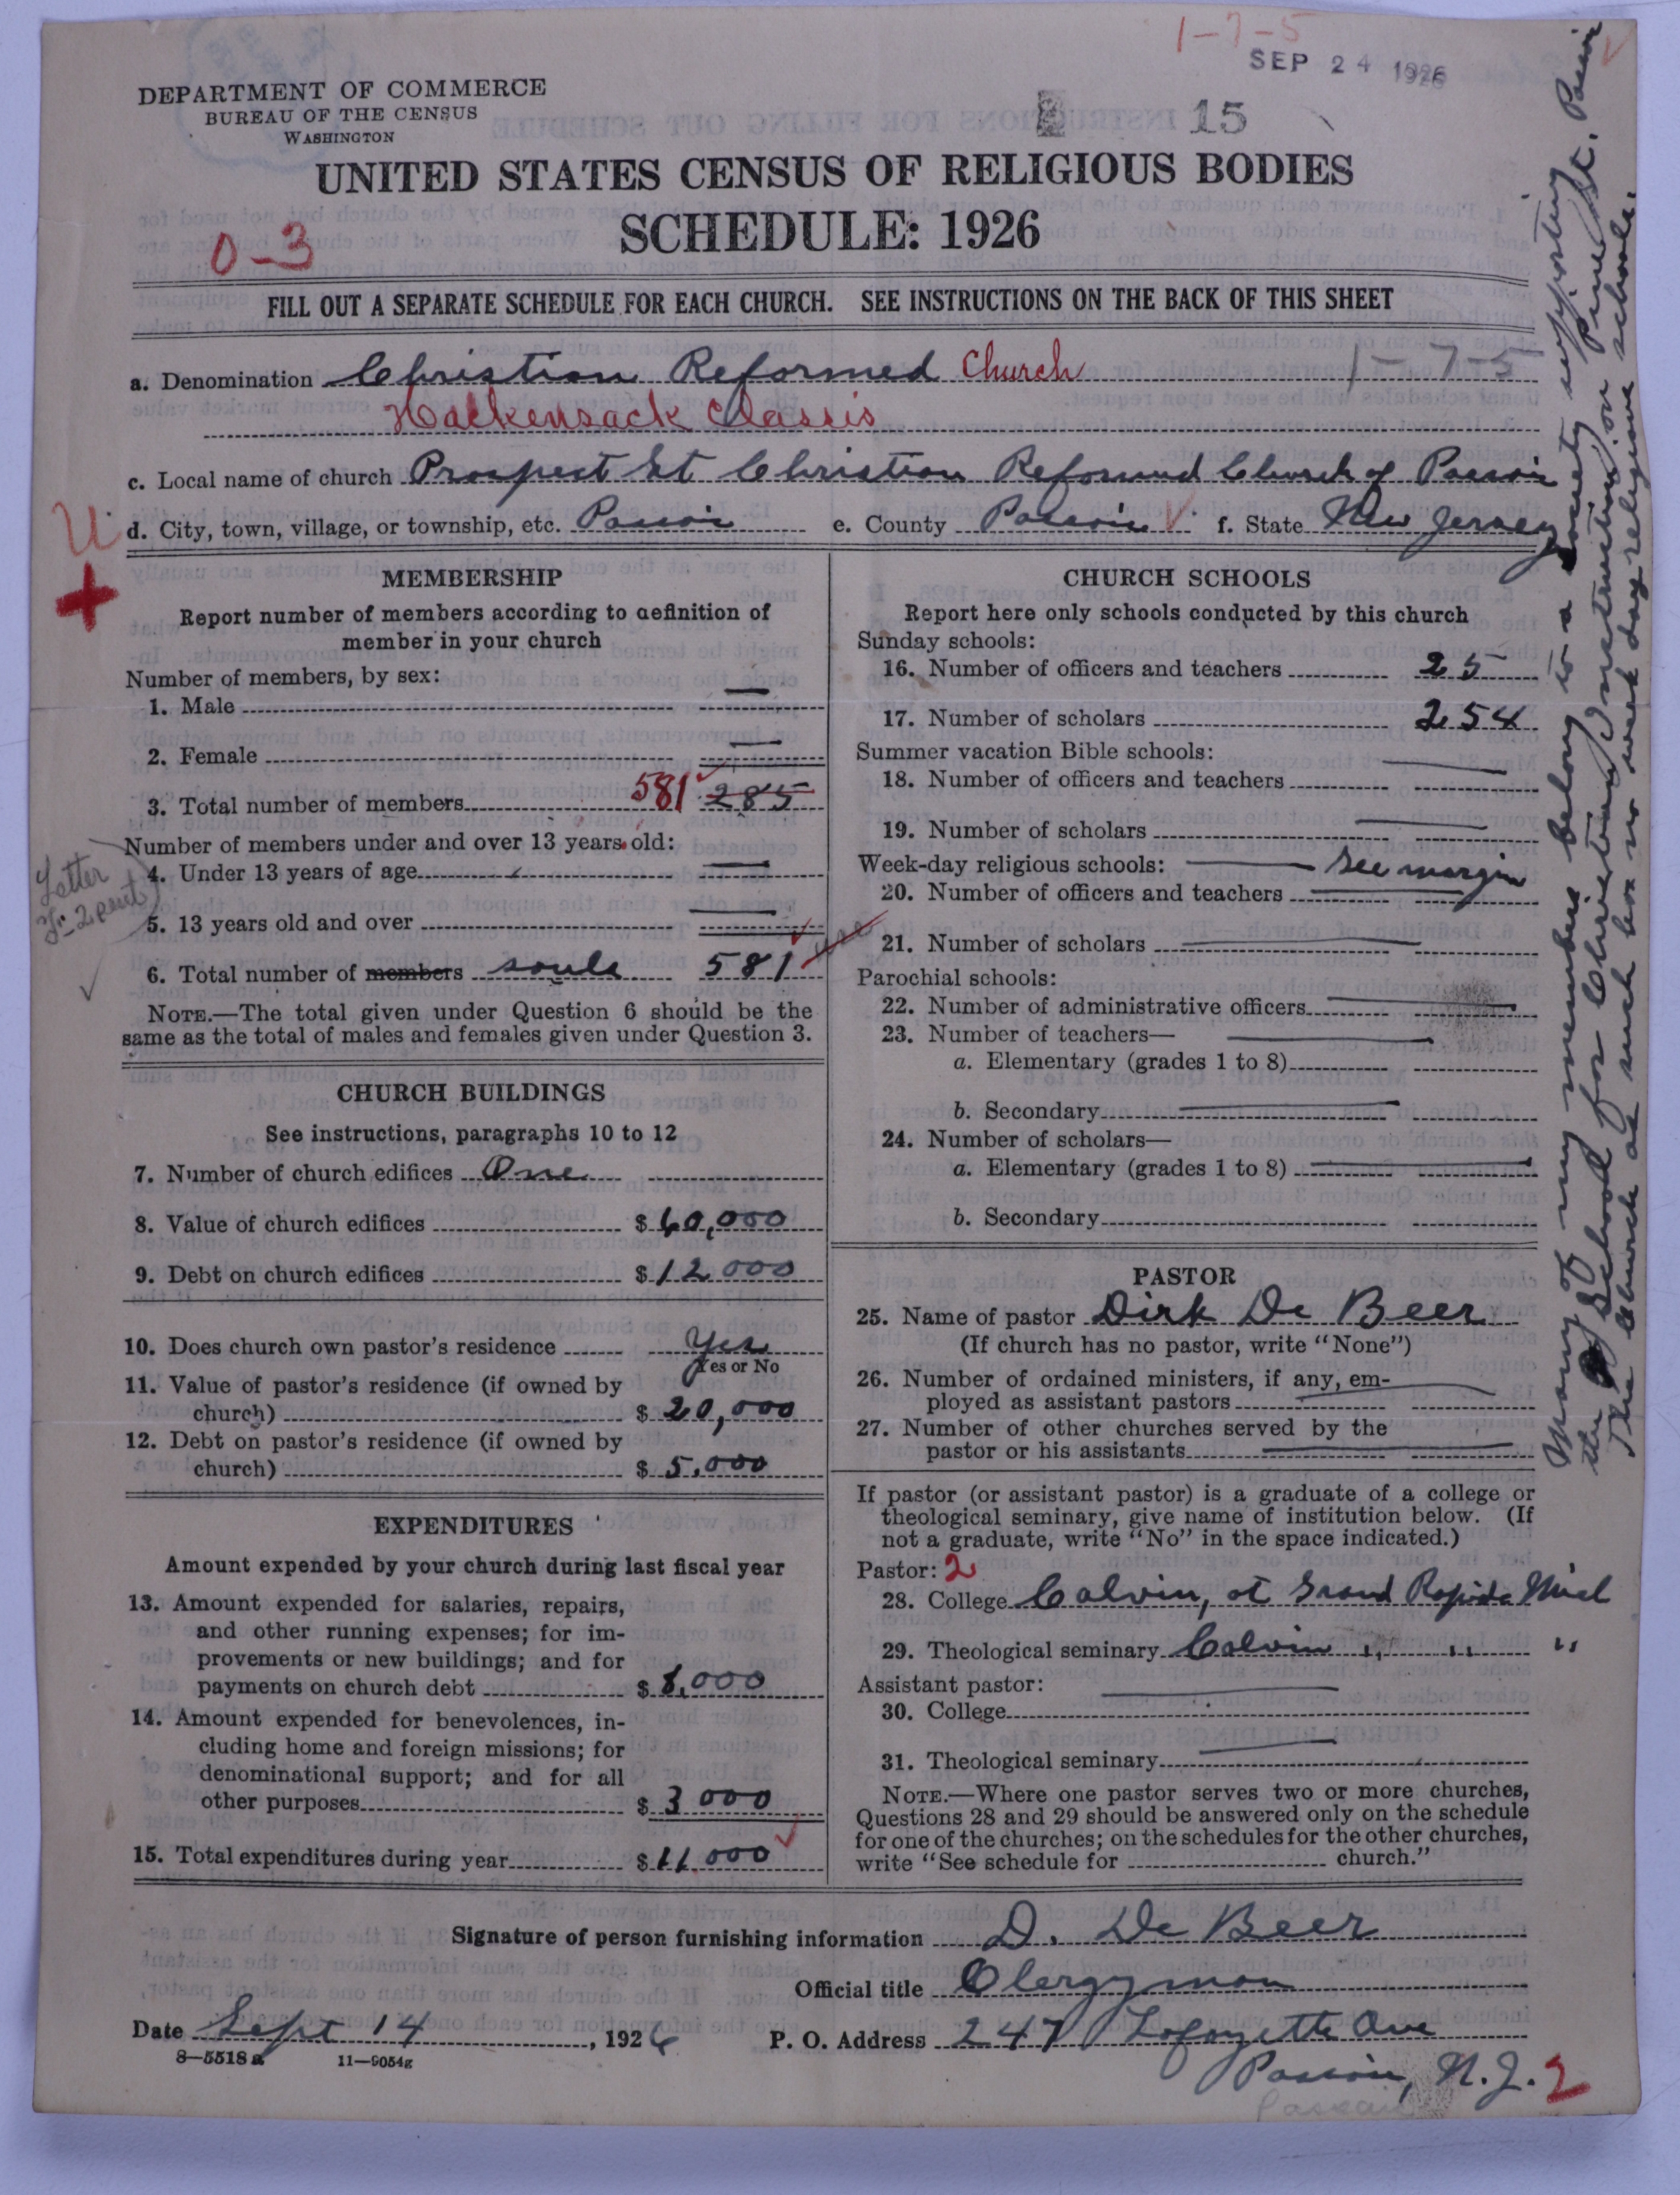 1-7-5
SEP 24 1926
15
DEPARTMENT OF COMMERCE
BUREAU OF THE CENSUS
WASHINGTON
UNITED STATES CENSUS OF RELIGIOUS BODIES
SCHEDULE: 1926
0-3
FILL OUT A SEPARATE SCHEDULE FOR EACH CHURCH. SEE INSTRUCTIONS ON THE BACK OF THIS SHEET
a. Denomination Christian Reformed Church 1-7-5
Hackensack Classis
c. Local name of church Prospect St Christian Reformed Church of Passaic
U
d. City, town, village, or township, etc. Passaic e. County Passaic f. State New Jersey
+
MEMBERSHIP
Report number of members according to definition of
member in your church
Number of members, by sex:
1. Male —
2. Female —
3. Total number of members 581 285
Number of members under and over 13 years old:
4. Under 13 years of age —
5. 13 years old and over —
Letter
6. Total number of members souls 581
NOTE.—The total given under Question 6 should be the
same as the total of males and females given under Question 3.
CHURCH BUILDINGS
See instructions, paragraphs 10 to 12
7. Number of church edifices One
8. Value of church edifices $60,000
9. Debt on church edifices $12000
10. Does church own pastor's residence Yes
Yes or No
11. Value of pastor's residence (if owned by
church) $20,000
12. Debt on pastor's residence (if owned by
church) $5,000
EXPENDITURES
Amount expended by your church during last fiscal year
13. Amount expended for salaries, repairs,
and other running expenses; for im-
provements or new buildings; and for
payments on church debt $8,000
14. Amount expended for benevolences, in-
cluding home and foreign missions; for
denominational support; and for all
other purposes $3000
15. Total expenditures during year $11000
CHURCH SCHOOLS
Report here only schools conducted by this church
Sunday schools:
16. Number of officers and teachers 25
17. Number of scholars 254
Summer vacation Bible schools:
18. Number of officers and teachers —
19. Number of scholars —
Week-day religious schools: — See margin
20. Number of officers and teachers —
21. Number of scholars —
Parochial schools:
22. Number of administrative officers —
23. Number of teachers— —
a. Elementary (grades 1 to 8)
b. Secondary —
24. Number of scholars—
a. Elementary (grades 1 to 8) —
b. Secondary
PASTOR
25. Name of pastor Dirk De Beer
(If church has no pastor, write "None")
26. Number of ordained ministers, if any, em-
ployed as assistant pastors —
27. Number of other churches served by the
pastor or his assistants —
If pastor (or assistant pastor) is a graduate of a college or
theological seminary, give name of institution below. (If
not a graduate, write "No" in the space indicated.)
Pastor: 2
28. College Calvin, at Grand Rapids Mich
29. Theological seminary Calvin " " "
Assistant pastor:
30. College —
31. Theological seminary —
NOTE.—Where one pastor serves two or more churches,
Questions 28 and 29 should be answered only on the schedule
for one of the churches; on the schedules for the other churches,
write "See schedule for church."
Many of my members belong to a society supporting
the School for Christian Instruction on Pine St. Passaic
The Church as such has no week day religious schools.
Signature of person furnishing information D. De Beer
Official title Clergyman
Date Sept 14, 1926 P. O. Address 247 Lafayette Ave
8—5518a 11—9054g
Passaic, N.J. 2
Passaic